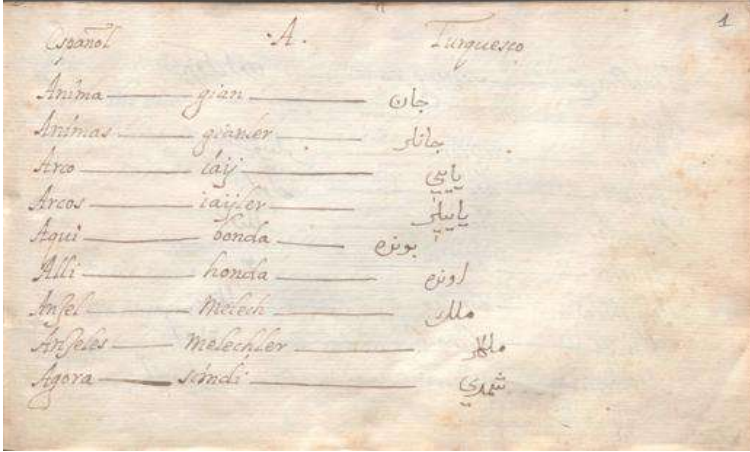 Español .A. Turquesco 1
Anima gian جان
Animas gianler جانلر
Arco iáij يايي
Arcos iaijler ياييلر
Aqui bonda بونده
Alli honda اونده
Angel Melech ملك
Angeles Melechler ملكلر
Agora scindi شمدي